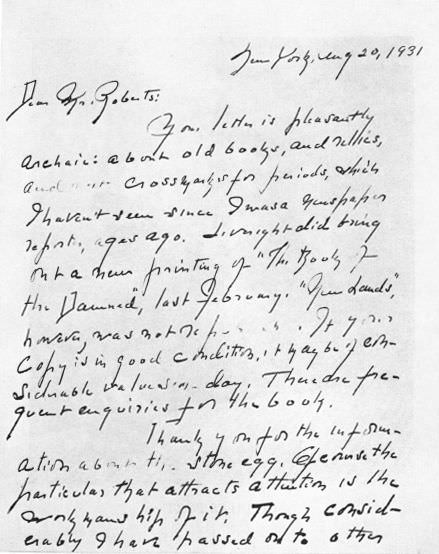 New York, Aug 20, 1931
Dear Mr. Roberts:
Your letter is pleasantly
archaic: about old books, and relics,
and crossmarks for periods, which
I haven't seen since I was a newspaper
reporter, ages ago. Liveright did bring
out a new printing of "The Book of
the Damned", last February. "New Lands",
however, was not If your
Copy is in good condition, it may be of con-
siderable value some day. There are fre-
quent enquiries for the book.
Thank you for the inform-
ation about the stone egg. Of course the
particular that attracts attention is the
workmanship of it. Though consid-
erably I have passed on to other